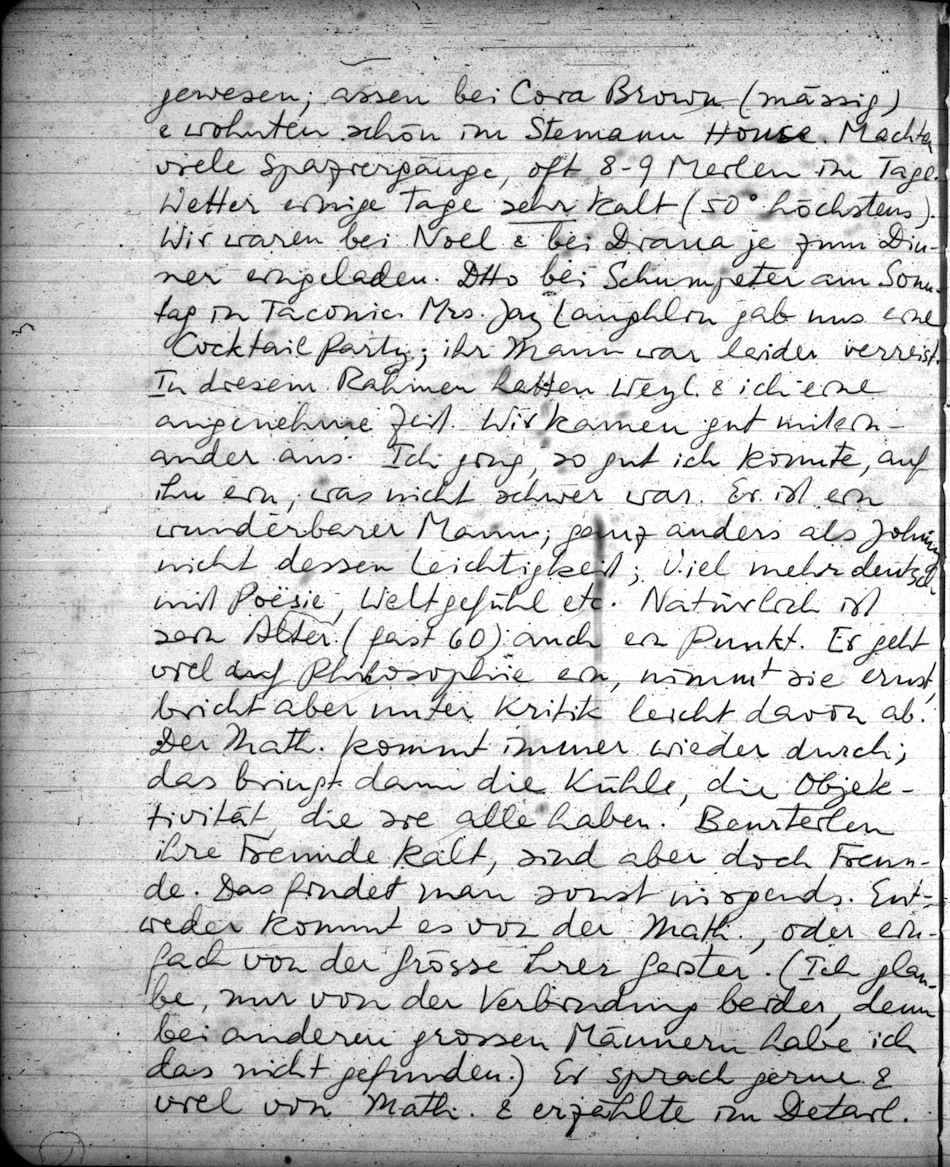 gewesen; assen bei Cora Brown (mässig)
& wohnten schön im Stemann House. Machten
viele Spaziergänge, oft 8-9 Meilen im Tage.
Wetter einige Tage sehr kalt (50° höchstens).
Wir waren bei Noel & bei Drana je zum Din-
ner eingeladen. Dtto bei Schumpeter am Sonn-
tag in Taconic. Mrs. Jay Laughlin gab uns eine
Cocktail Party; ihr Mann war leider verreist.
In diesem Rahmen hatten Weyl & ich eine
angenehme Zeit. Wir kamen gut mitein-
ander aus. Ich ging, so gut ich konnte, auf
ihn ein, was nicht schwer war. Er ist ein
wunderbarer Mann; ganz anders als Johnny
nicht dessen Leichtigkeit; Viel mehr deutsch
mit Poësie, Weltgefühl etc. Natürlich ist
sein Alter (fast 60) auch ein Punkt. Er geht
viel auf Philosophie ein, nimmt sie ernst,
bricht aber unter Kritik leicht davon ab.
Der Math. kommt immer wieder durch;
das bringt dann die Kühle, die Objek-
tivität, die sie alle haben. Beurteilen
ihre Freunde kalt, sind aber doch Freun-
de. Das findet man sonst nirgends. Ent-
weder kommt es von der Math., oder ein-
fach von der Grösse ihrer Geister. (Ich glau-
be, nur von der Verbindung beider, denn
bei anderen grossen Männern habe ich
das nicht gefunden.) Er sprach gerne &
viel von Math. & erzählte im Detail.